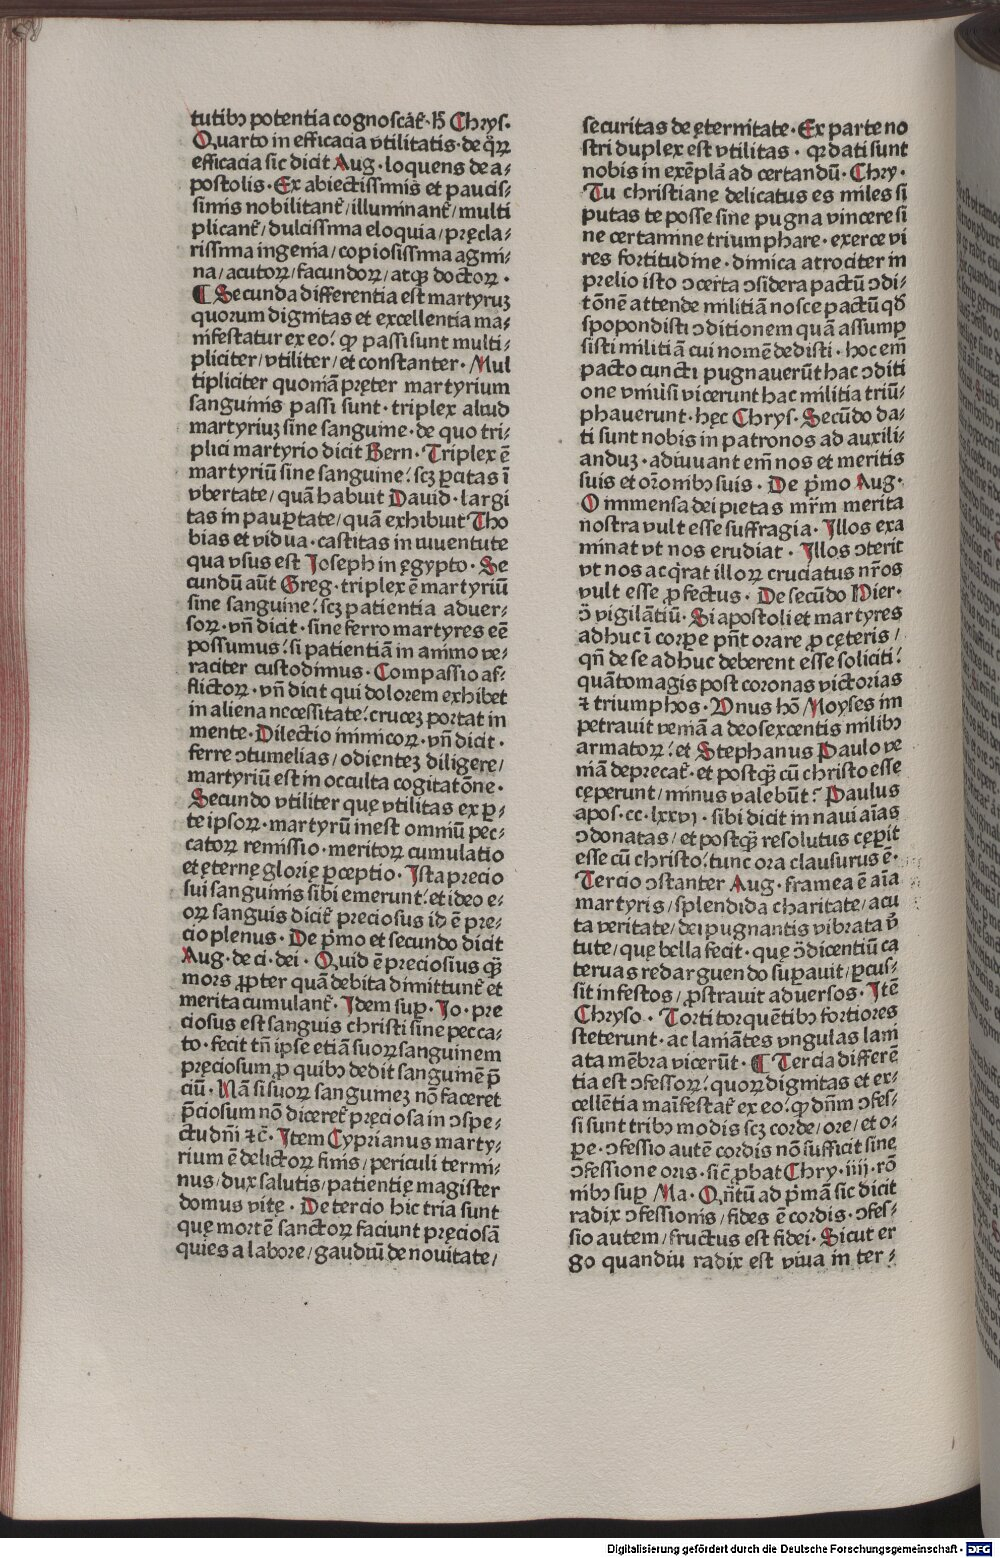 tutibꝫ potentia cognoſcãt᷑·h̃ Chryſ·
Quarto in efficacia vtilitatis·de q̃ꝝ
efficacia ſic dicit Aug·loquens de a⸗
poſtolis·Ex abiectiſſimis et pauciſ⸗
ſimis nobilitant᷑/illuminant᷑/multi
plicant᷑/dulciſſima eloquia/pręcla⸗
riſſima ingenia/copioſiſſima agmi⸗
na/acutoꝝ/facundoꝝ/atqꝫ doctoꝝ·
¶ Secunda differentia eſt martyruꝫ
quorum dignitas et excellentia ma⸗
nifeſtatur ex eo: qꝙ paſſi ſunt multi⸗
pliciter/vtiliter/et conſtanter·Mul
tipliciter quoniã pręter martyrium
ſanguinis paſſi ſunt·triplex aliud
martyriuꝫ ſine ſanguine·de quo tri⸗
plici martyrio dicit Bern·Triplex ẽ
martyriũ ſine ſanguine: ſcꝫ ꝑcitas ĩ
vbertate/quã habuit Dauid·largi
tas in pauꝑtate/quã exhibuit Tho
bias et vidua·caſtitas in iuuentute
qua vſus eſt Joſeph in ęgypto·Se
cundũ aũt Greg·triplex ẽ martyriũ
ſine ſanguine: ſcꝫ patientia aduer⸗
ſoꝝ·vñ dicit·ſine ferro martyres eẽ
poſſumus: ſi patientiã in animo ve⸗
raciter cuſtodimus·Compaſſio af⸗
flictoꝝ·vñ dicit qui dolorem exhibet
in aliena neceſſitate: cruceꝫ portat in
mente·Dilectio inimicoꝝ·vñ dicit·
ferre ꝯtumelias/odienteꝫ diligere/
martyriũ eſt in occulta cogitatõne·
Secundo vtiliter quę vtilitas ex ꝑ⸗
te ipſoꝝ·martyrũ ineſt omniũ pec⸗
catoꝝ remiſſio·meritoꝝ cumulatio
et ęternę glorię ꝑceptio·Iſta precio
ſui ſanguinis ſibi emerunt: et ideo e⸗
oꝝ ſanguis dicit᷑ precioſus id ẽ pre⸗
cio plenus·De p̃mo et ſecundo dicit
Aug·de ci·dei·Quid ẽ precioſius qꝫ̃
mors ꝓpter quã debita dimittunt᷑ et
merita cumulant᷑·Idem ſuꝑ·Jo·pre
cioſus eſt ſanguis chriſti ſine pecca⸗
to·fecit tñ ipſe etiã ſuoꝝ ſanguinem
pręcioſum ꝓ quibꝫ dedit ſanguinẽ p̃
ciũ·Nã ſi ſuoꝝ ſanguineꝫ nõ faceret
p̃cioſum nõ diceret᷑ pręcioſa in ꝯſpe⸗
ctu dñi ⁊c̃·Item Cyprianus marty⸗
rium ẽ delictoꝝ finis/periculi termi⸗
nus/dux ſalutis/patientię magiſter
domus vitę·De tercio hic tria ſunt
quę mortẽ ſanctoꝝ faciunt pręcioſã
quies a labore/gaudiũ de nouitate/
ſecuritas de ęternitate·Ex parte no
ſtri duplex eſt vtilitas·qꝛ dati ſunt
nobis in exẽpla᷑ ad certandũ·Chry·
Tu chriſtiane delicatus es miles ſi
putas te poſſe ſine pugna vincere ſi
ne certamine triumphare·exerce vi
res fortitudine·dimica atrociter in
prelio iſto ꝯcerta ꝯſidera pactũ ꝯdi⸗
tõnẽ attende militiã noſce pactũ qđ
ſpopondiſti ꝯditionem quã aſſumꝑ
ſiſti militiã cui nomẽ dediſti·hoc em̃
pacto cuncti pugnauerũt hac ꝯditi
one vniuſi vicerunt hac militia triũ⸗
phauerunt·hęc Chryſ·Secũdo da⸗
ti ſunt nobis in patronos ad auxili⸗
anduꝫ·adiuuant em̃ nos et meritis
ſuis et or̃onibꝫ ſuis·De p̃mo Aug·
O immenſa dei pietas mr̃m merita
noſtra vult eſſe ſuffragia·Illos exa
minat vt nos erudiat·Illos ꝯterit
vt nos acq̃rat illoꝝ cruciatus nr̃os
vult eſſe ꝓfectus·De ſecũdo Hier·
ꝯ̃ vigilãtiũ·Si apoſtoli et martyres
adhuc ĩ corꝑe pñt orare ꝓ cęteris/
qñ de ſe adhuc deberent eſſe ſoliciti:
quãtomagis poſt coronas victorias
⁊ triumphos·Vnus hõ Moyſes im
petrauit veniã a deo ſexcentis milibꝫ
armatoꝝ: et Stephanus Paulo ve
niã deprecat᷑·et poſtqꝫ̃ cũ chriſto eſſe
cęperunt/minus valebũt: Paulus
apos·cc·lxxvj·ſibi dicit in naui aĩas
ꝯdonatas/et poſtqꝫ̃ reſolutus cępit
eſſe cũ chriſto: tunc ora clauſurus ẽ·
Tercio ꝯſtanter Aug·framea ẽ aĩa
martyris/ſplendida charitate/acu
ta veritate/dei pugnantis vibrata v̉
tute/quę bella fecit·quę ꝯ̃dicentiũ ca
teruas redarguendo ſuꝑauit/ꝑcuſ⸗
ſit infeſtos/ꝓſtrauit aduerſos·Itẽ
Chryſo·Torti torquẽtibꝫ fortiores
ſteterunt·ac laniãtes vngulas lani
ata mẽbra vicerũt·¶ Tercia differẽ
tia eſt ꝯfeſſoꝝ: quoꝝ dignitas et ex⸗
cellẽtia maĩfeſtat᷑ ex eo: qꝙ dñm ꝯfeſ⸗
ſi ſunt tribꝫ modis ſcꝫ corde/ore/et o⸗
ꝑe·ꝯfeſſio autẽ cordis nõ ſufficit ſine
ꝯfeſſione oris·ſic̃ ꝓbat Chry·iiij·rõ
nibꝫ ſuꝑ Ma·Qñtũ ad p̃mã ſic dicit
radix ꝯfeſſionis/fides ẽ cordis·ꝯfeſ⸗
ſio autem/fructus eſt fidei·Sicut er
go quandiu radix eſt viua in ter⸗
Digitalisierung gefördert durch die Deutsche Forschungsgemeinschaft · DFG